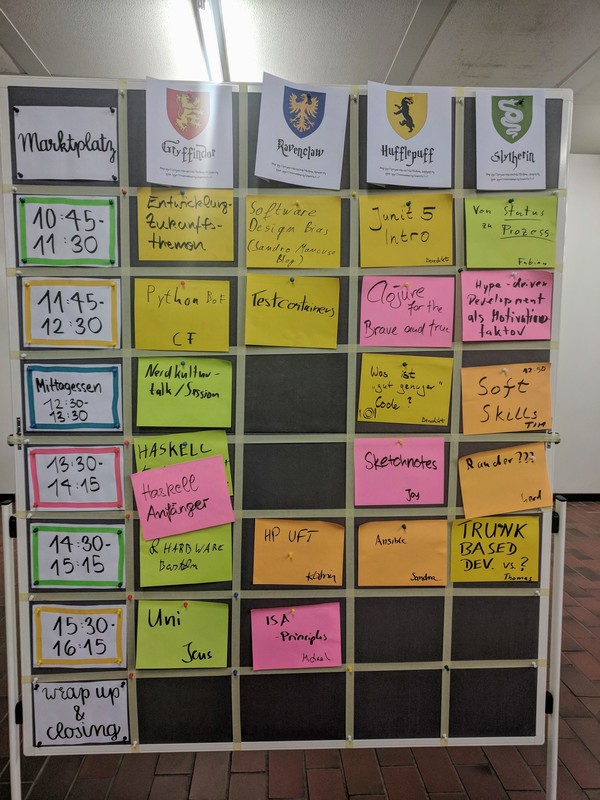 Marktplatz
Gryffindor
Ravenclaw
Hufflepuff
Slytherin
10:45-
11:30
Entwicklung-
Zukunfts-
themen
Software
Design Bias
(Sandro Mancuso
Blog)
Junit 5
Intro
Von Status
zu Prozess
Fabian
11:45-
12:30
Python BoF
CF
Testcontainers
Clojure
for the
Brave and true
Hype-driven
Development
als Motivations
faktor
Mittagessen
12:30-
13:30
Nerdkultur-
talk/Session
Was ist
"gut genuger"
Code?
12:50
Soft
Skills
TIM
13:30-
14:15
HASKELL
Haskell
Anfänger
Sketchnotes
Joy
Rancher???
Gerd
14:30-
15:15
& HARDWARE
Basteln
HP UFT
Ansible
Sandra
TRUNK
BASED
DEV. vs.?
Thomas
15:30-
16:15
Uni
Jens
ISA
-Principles
Michael
wrap up
&
closing